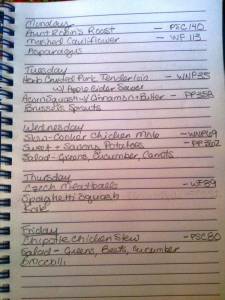 Monday
Aunt Robin's Roast - PSC140
Mashed Cauliflower - WF 113
Asparagus
Tuesday
Herb Crusted Pork Tenderloin - WNP35
w/ Apple Cider Sauce
Acorn Squash w/ Cinnamon + Butter - PP358
Brussels Sprouts
Wednesday
Slow-Cooker Chicken Mole
Sweet + Savory Potatoes - PP362
Salad - Greens, Cucumber, Carrots
Thursday
Czech Meatballs - WF89
Spaghetti Squash
Kale
Friday
Chipotle Chicken Stew - PSC80
Salad - Greens, Beets, Cucumber
Broccoli